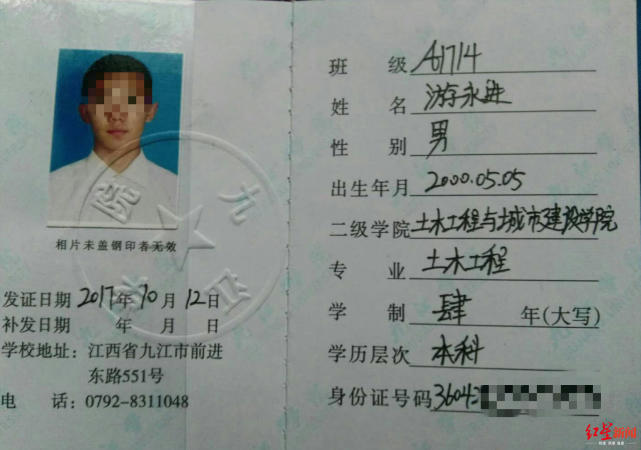 相片未盖钢印者无效
发证日期 2017年10月12日
补发日期 年 月 日
学校地址：江西省九江市前进
东路551号
电 话：0792-8311048
班 级 A1714
姓 名 游永进
性 别 男
出生年月 2000.05.05
二级学院 土木工程与城市建设学院
专 业 土木工程
学 制 肆 年(大写)
学历层次 本科
身份证号码 3604
红星新闻